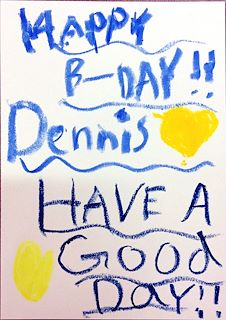 HAPPY
B-DAY!!
Dennis
HAVE A
GOOD
DAY!!